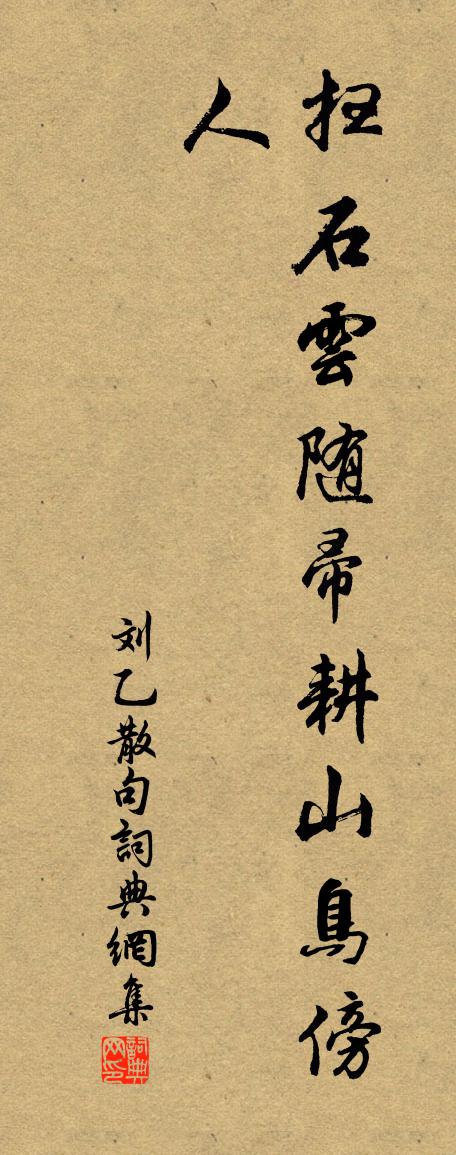 扫石雲随帚耕山鳥傍
人
刘乙散句詞典網集
詞典网印